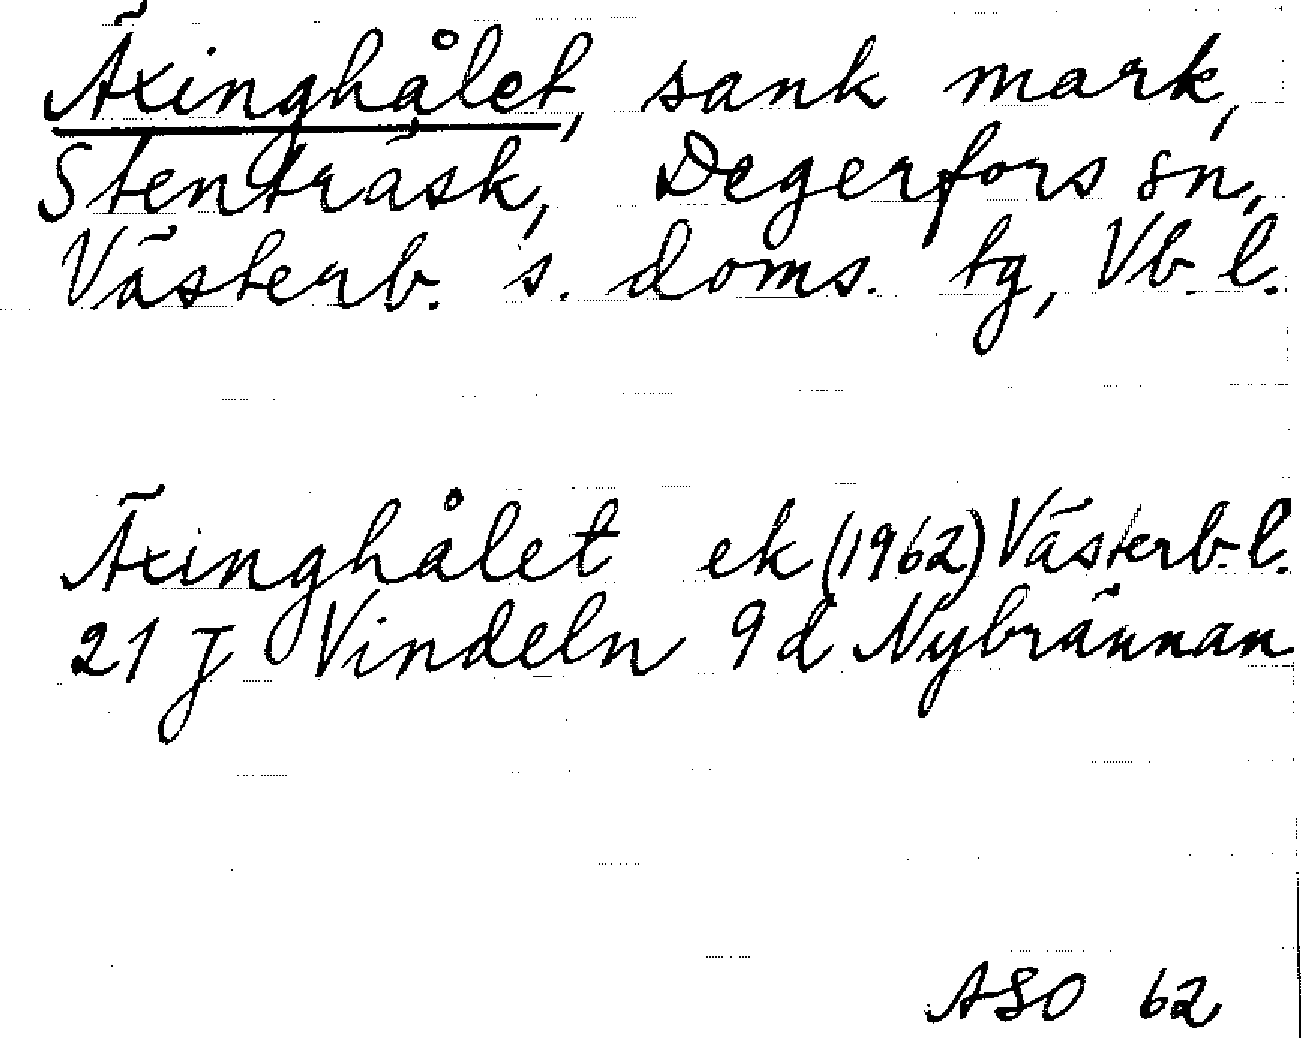 Äxinghålet, sank mark,
Stenträsk, Degerfors sn,
Västerb. s. doms. tg, Vb. l.
Äxinghålet ek (1962) Västerb. l.
21 J Vindeln 9 d Nybrännan
ASO 62